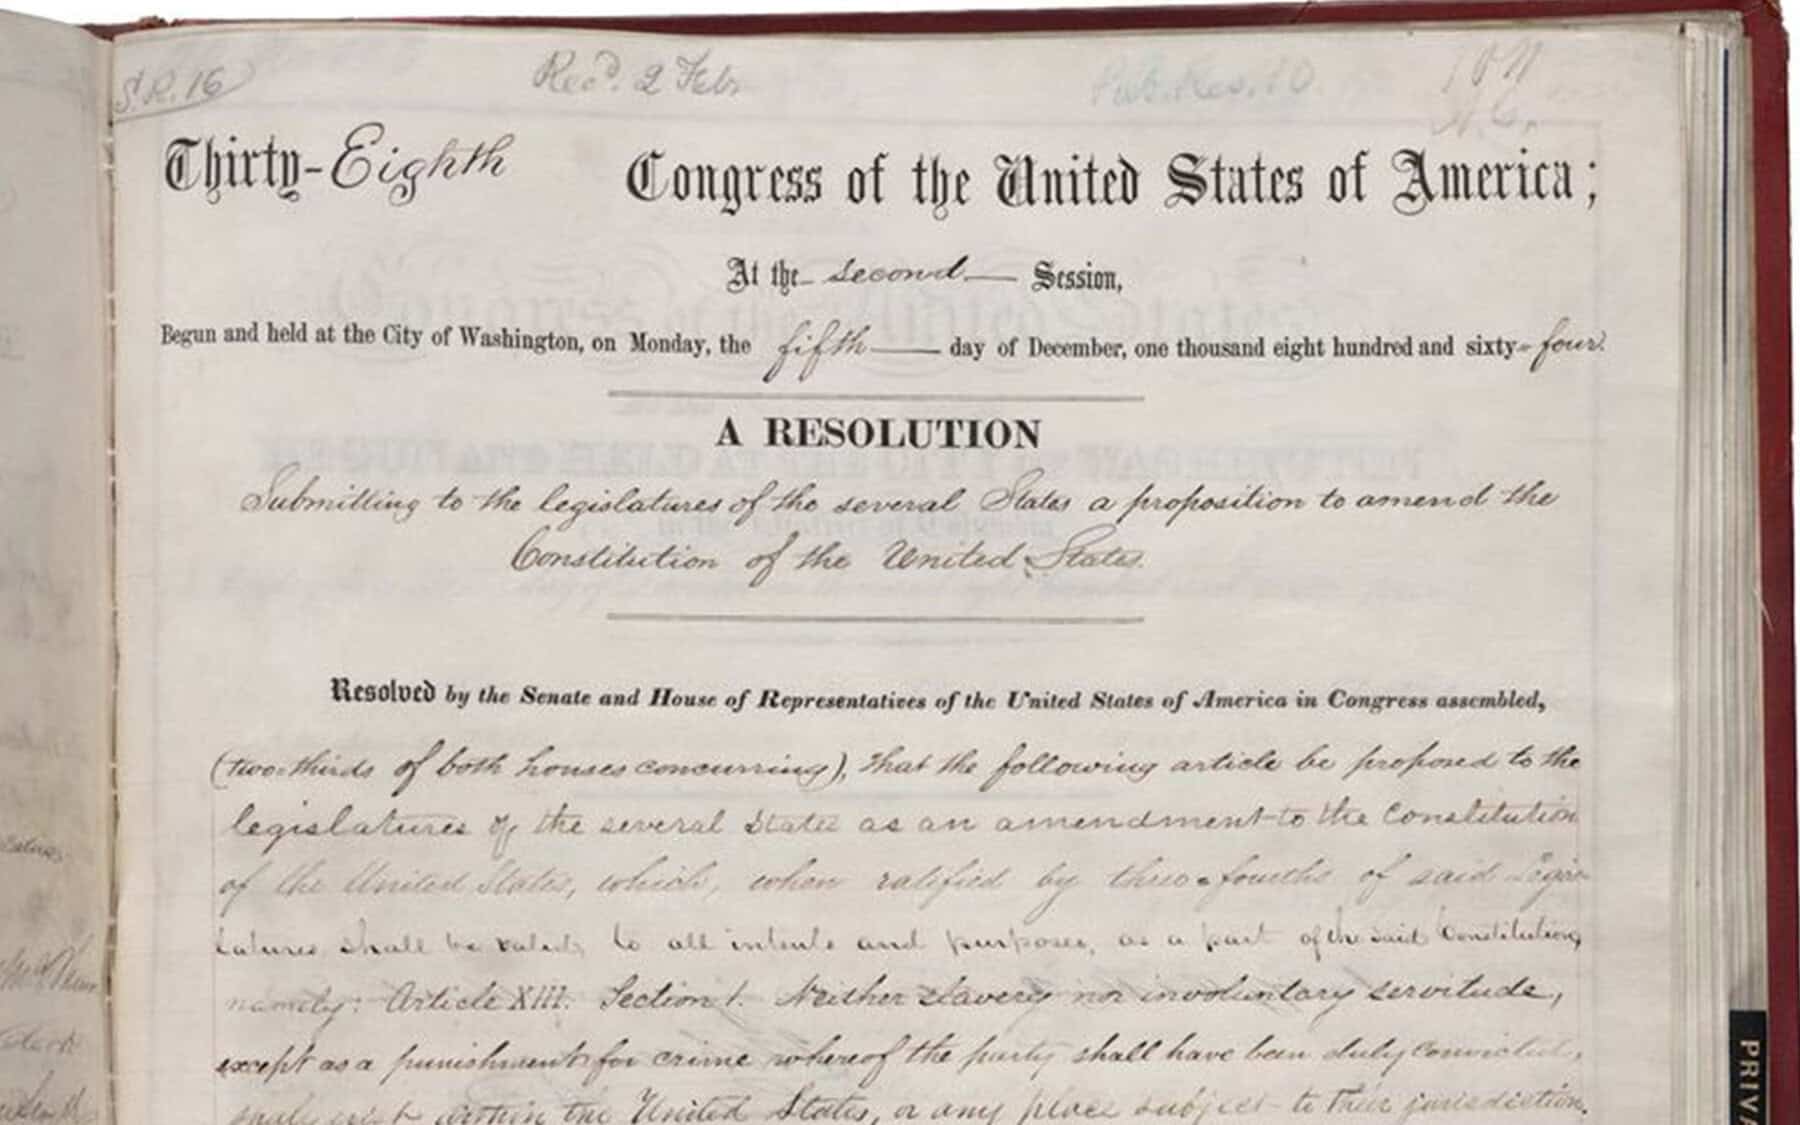 S.R. 16
Rec'd. 2 Feb
Pub. Res. 10
Thirty-Eighth Congress of the United States of America;
At the second Session,
Begun and held at the City of Washington, on Monday, the fifth day of December, one thousand eight hundred and sixty-four.
A RESOLUTION
Submitting to the legislatures of the several States a proposition to amend the
Constitution of the United States.
Resolved by the Senate and House of Representatives of the United States of America in Congress assembled,
(two-thirds of both houses concurring), that the following article be proposed to the
legislatures of the several States as an amendment to the Constitution
of the United States, which, when ratified by three-fourths of said Legis-
latures shall be valid, to all intents and purposes, as a part of the said Constitution,
namely: Article XIII. Section 1. Neither slavery nor involuntary servitude,
except as a punishment for crime whereof the party shall have been duly convicted,
shall exist within the United States, or any place subject to their jurisdiction.
PRIVA